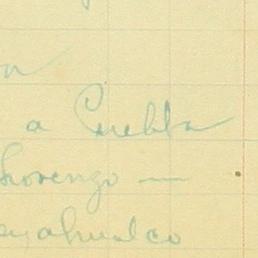 a Puebla
Lorenzo —
eyahualco